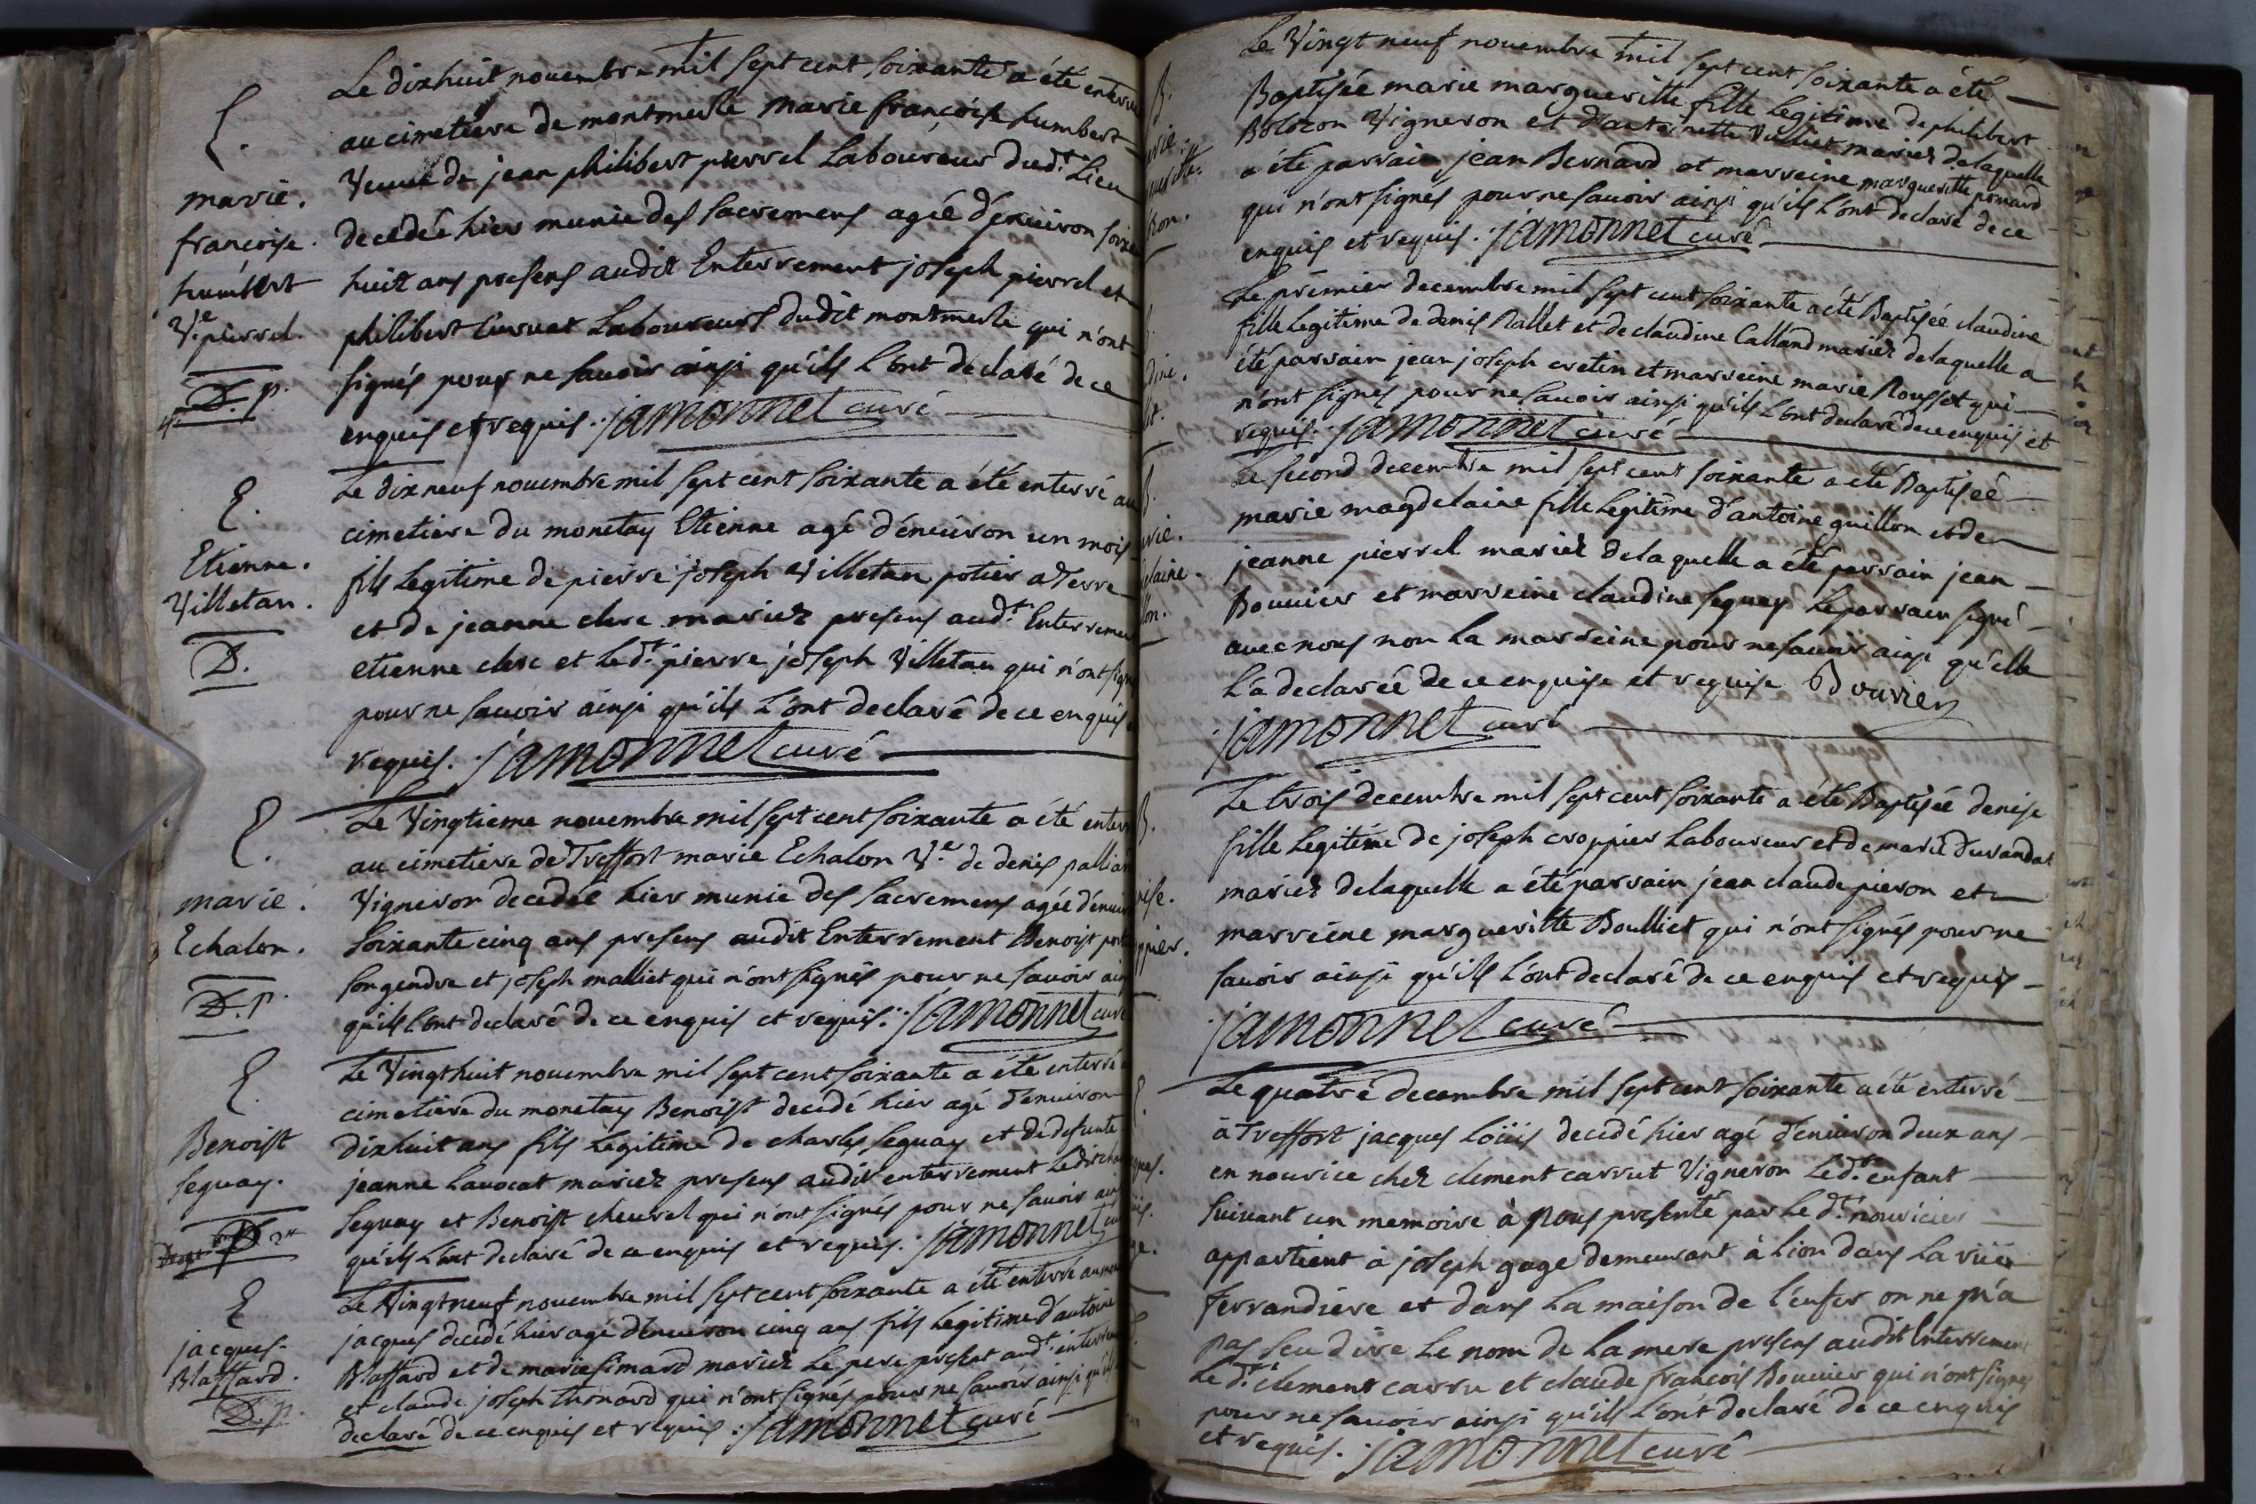 E.
marie.
françoise.
humbert
Ve. pierrel.
D. p.
Le dixhuit novembre mil sept cent soixante a été enterré
au cimetiere de montmerle marie françoise humbert
Veuve de jean philibert pierrel Laboureur dud.t Lieu
decedée hier munie des sacremens agée d'environ soixan
huit ans presens audit Enterrement joseph pierrel et
philibert Laboureurs dudit montmerle qui n'ont
signés pour ne savoir ainsi qu'ils l'ont declaré de ce
enquis et requis. jamonnet curé
E.
Etienne.
Villetan.
D.
Le dix neuf novembre mil sept cent soixante a été enterré au
cimetiere du monetay Etienne agé d'environ un mois
fils Legitime de pierre joseph Villetan potier a Terre
et de jeanne clerc mariez presens aud.t Enterrement
etienne clerc et led.t pierre joseph Villetan qui n'ont signé
pour ne savoir ainsi qu'ils l'ont declaré de ce enquis
requis. jamonnet curé
E.
marie.
Echalon.
D. p.
Le Vingtieme novembre mil sept cent soixante a été enterr
au cimetiere de Treffort marie Echalon Ve. de denis pallia
Vigneron decedée hier munie des sacremens agée d'envir
soixante cinq ans presens audit Enterrement Benoist
son gendre et joseph malliet qui n'ont signés pour ne savoir ain
qu'ils l'ont declaré de ce enquis et requis. jamonnet curé
E.
Benoist
seguay.
Le Vingthuit novembre mil sept cent soixante a été enterré
cimetiere du monetay Benoist decedé hier agé d'environ
dixhuit ans fils Legitime de charles seguay et de defunte
jeanne Lavocat mariez presens audit enterrement Ledit cha
seguay et Benoist chevrel qui n'ont signés pour ne savoir ain
qu'ils l'ont declaré de ce enquis et requis. jamonnet cu
E
jacques.
Blaffard.
D. p.
Le Vingtneuf novembre mil sept cent soixante a été enterré au mon
jacques decedé hier agé d'environ cinq ans fils Legitime d'antoine
Blaffard et de marie simard mariez Le pere present aud.t enterrem
et claude joseph thenard qui n'ont signés pour ne savoir ainsi qu'ils
declaré de ce enquis et requis. jamonnet curé
B.
Le Vingt neuf novembre mil sept cent soixante a été
Baptisée marie margueritte fille Legitime de philibert
Bolozon Vigneron et d'antoinette Vulliet mariez de laquelle
a été parrain jean Bernard et marreine margueritte ponard
qui n'ont signés pour ne savoir ainsi qu'ils l'ont declaré de ce
enquis et requis. jamonnet curé
Le premier decembre mil sept cent soixante a été Baptisée claudine
fille Legitime de denis Rallet et de claudine Calland mariez de laquelle a
été parrain jean joseph cretin et marreine marie Rousset qui
n'ont signés pour ne savoir ainsi qu'ils l'ont declaré de ce enquis et
requis. jamonnet curé
Le second decembre mil sept cent soixante a été Baptisée
marie magdelaine fille Legitime d'antoine guillon et de
jeanne pierrel mariez de laquelle a été parrain jean
Bouvier et marreine claudine seguay Le parrain signé
avec nous non La marreine pour ne savoir ainsi qu'elle
L'a declarée de ce enquise et requise Bouvier
jamonnet curé
B.
Le trois decembre mil sept cent soixante a été Baptisée denise
fille Legitime de joseph croppier Laboureur et de marie durandat
mariez de laquelle a été parrain jean claude pieron et
marreine margueritte Boulliet qui n'ont signés pour ne
savoir ainsi qu'ils l'ont declaré de ce enquis et requis
jamonnet curé
Le quatre decembre mil sept cent soixante a été enterré
à Treffort jacques Loüis decedé hier agé d'environ deux ans
en nourice chez clement carrut Vigneron Led.t enfant
suivant un memoire à nous presenté par Le d.t nouricier
appartient à joseph gage demeurant à Lion dans La rüe
ferrandiere et dans La maison de l'enfer on ne m'a
pas seu dire Le nom de La mere presens audit Enterrement
Le d.t clement carru et claude françois Bouvier qui n'ont signés
pour ne savoir ainsi qu'ils l'ont declaré de ce enquis
et requis. jamonnet curé